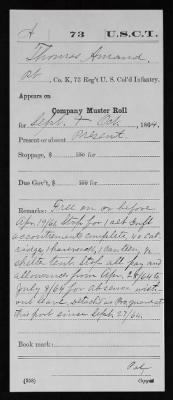 A 73 U.S.C.T.
Thomas Amand
Pvt., Co. K, 73 Reg't U. S. Col'd Infantry.
Appears on
Company Muster Roll
for Sept. & Oct., 1864.
Present or absent Present
Stoppage, $ 100 for
Due Gov't, $ 100 for
Remarks: Free on or before
Apr. 19/61 Stop for 1 set Inft
accoutrements complete, 40 cat
ridge, 1 haversack, 1 canteen, ½
shelter tent. Stop all pay and
allowances from Apr. 26/64 to
July 9/64 for absence with
out leave. Detchd as
this post since Sept. 27/64.
Book mark:
(358) Copyist.